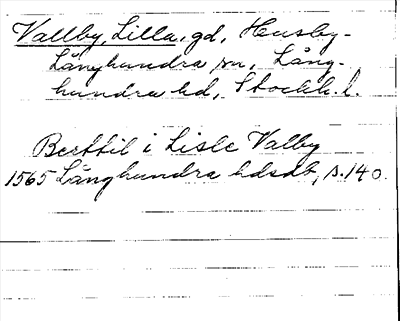 Vallby, Lilla, gd, Husby-
Långhundra sn, Lång-
hundra hd, Stockh. l.
Berttil i Lisle Valby
1565 Långhundra hdsdb, s. 140.